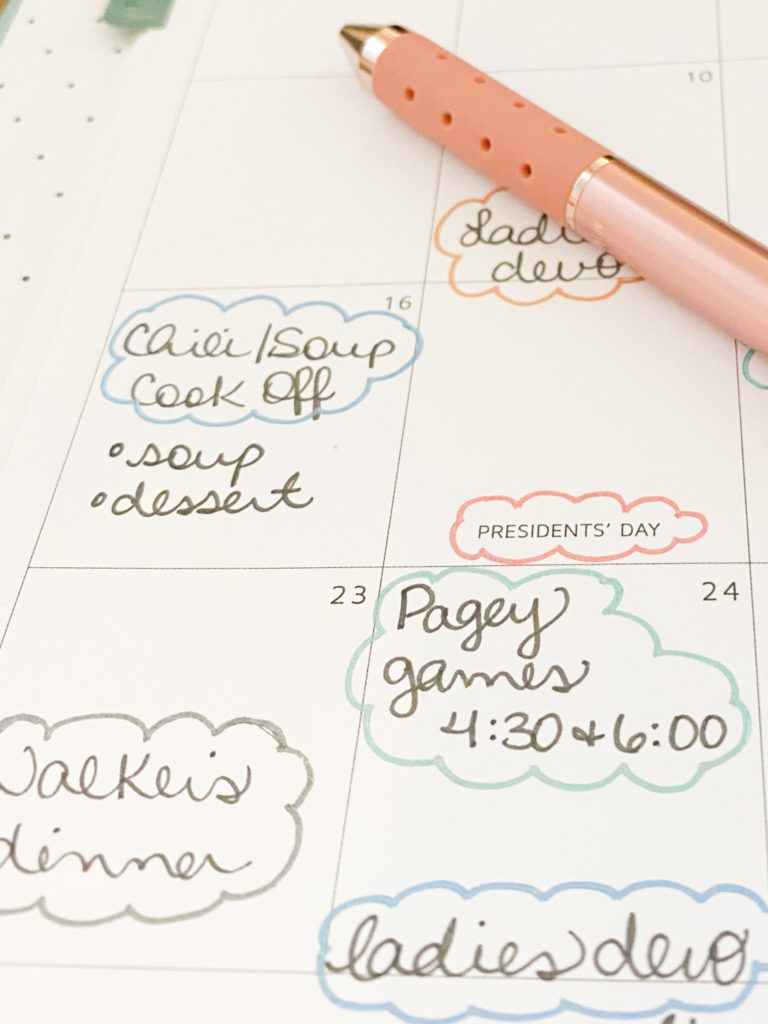 10
devo
16
Chili/Soup
Cook Off
•soup
•dessert
PRESIDENTS' DAY
23
24
Pagey
games
4:30 & 6:00
dinner
ladies devo